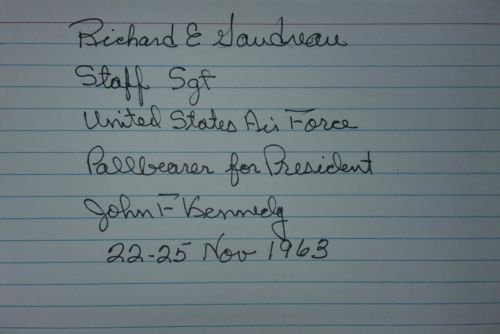 Richard E Gaudreau
Staff Sgt
United States Air Force
Pallbearer for President
John F Kennedy
22-25 Nov 1963